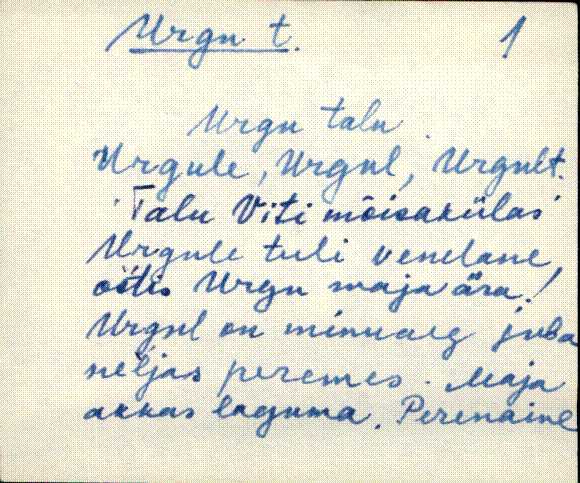 Urgu t. 1
Urgu talu.
Urgule, Urgul, Urgult.
'Talu Viti mõisakülas'
Urgule tuli venelane,
ostis Urgu maja ära!
Urgul on minuaeg juba
neljas peremes. Maja
akkas laguma. Perenaine